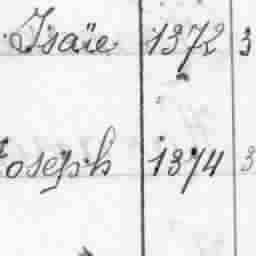 Isaïe 1372 3
Joseph 1374 3